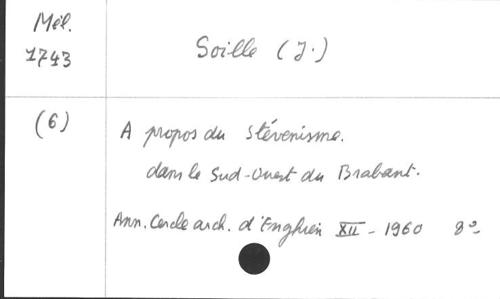 Mél.
1743
Soille (J.)
(6)
A propos du Stévenisme.
dans le Sud-Ouest du Brabant.
Ann. Cercle arch. d'Enghien XII - 1960 8°